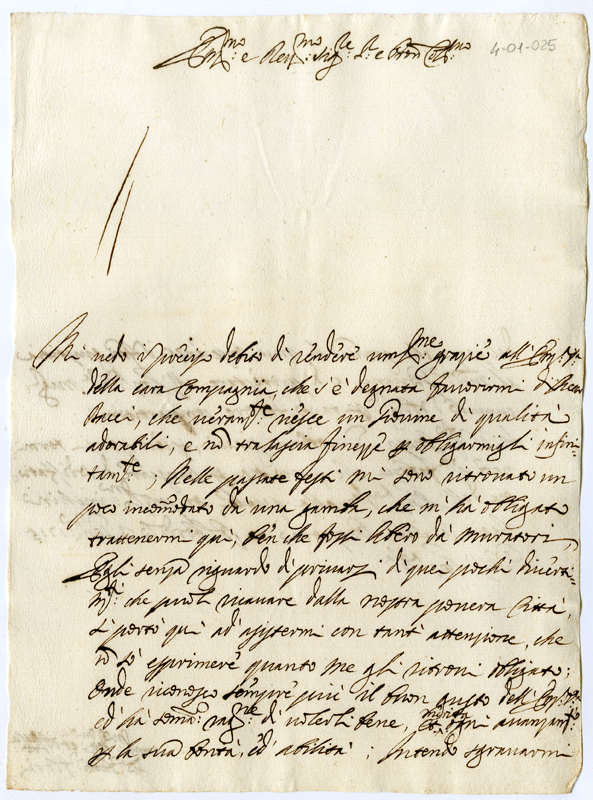 Em:mo e Rev:mo Sig:re S:r e Pron Col:mo
4-01-025
Mi vedo in preciso debito di rendere um:me grazie all'
della cara Compagnia, che s'è degnata favorirmi di
Bacci, che veram:te riesce un Giovine di qualità
adorabili, e nõ tralascia finezze p obligarmigli infini-
tam:te; Nelle passate feste mi sono ritrovato un
poco incomodato da una gamba, che m'ha obligato
trattenermi qui, benche fossi libero da muratori,
Egli senza riguardo di privarsi di quei pochi diverti-
m:ti che puol ricavare dalla nostra povera Città,
si portò quì ad assistermi con tant'attenzione, che
nõ sò esprimere quanto me gli ritrovi obligato;
Onde riconosco sempre più il buon gusto dell'
ed hà som:a rag:ne di volerli bene, merita ogni avanzam:to
p la sua bontà, ed abilità; Intendo sgravarmi